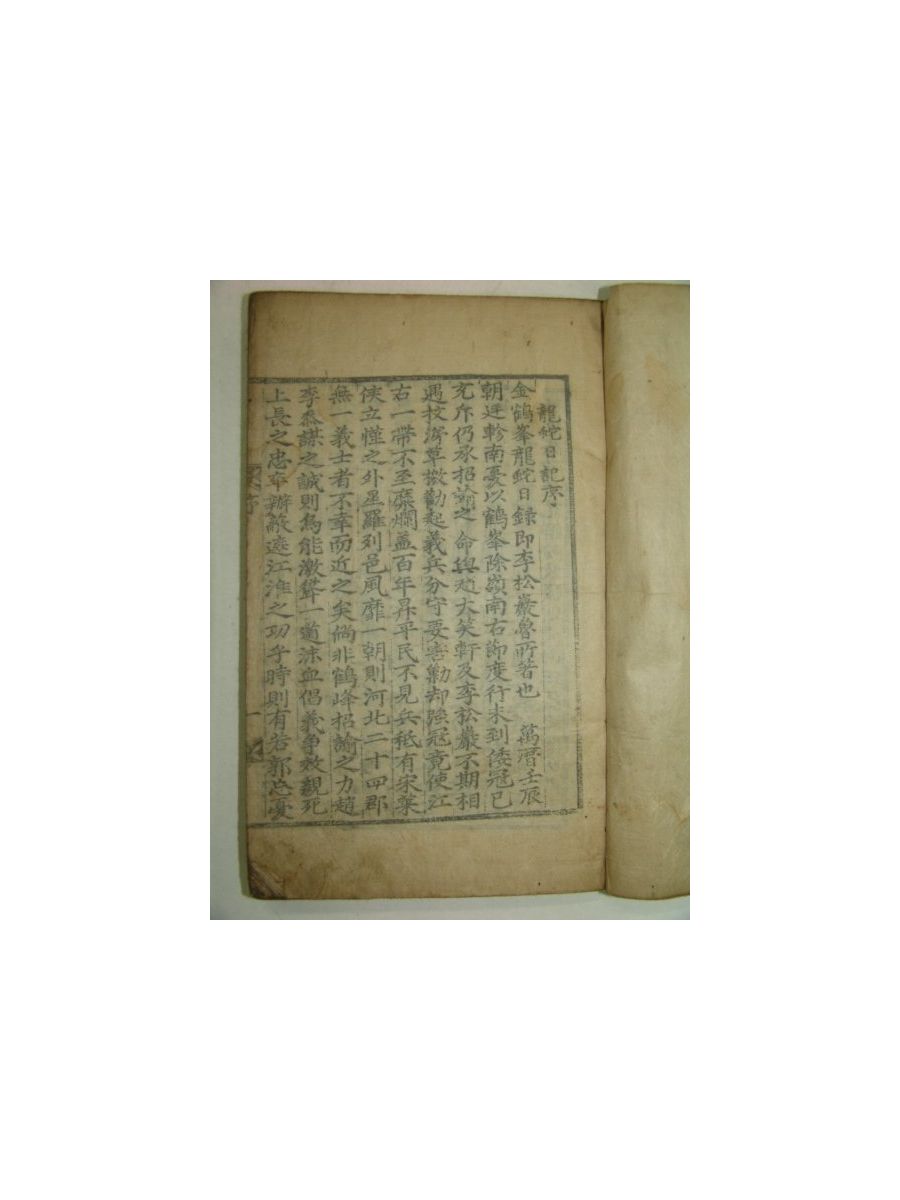 龍蛇日記序
金鶴峯龍蛇日録即李松巖魯所著也 萬曆壬辰
朝廷軫南憂以鶴峯除嶺南右節度行未到倭冦已
充斥仍承招諭之 命與趙大笑軒及李松巖不期相
遇投濟草檄勸起義兵分守要害勦却強冦竟使江
右一帶不至糜爛盖百年昇平民不見兵秪有宋葉
侠立慬之外星羅列邑風靡一朝則河北二十四郡
無一義士者不幸而近之矣倘非鶴峰招諭之力趙
李叅謀之誠則烏能激聳一道沫血倡義争效親死
上長之忠卒辦蔽遮江淮之功乎時則有若郭忘憂
序 一